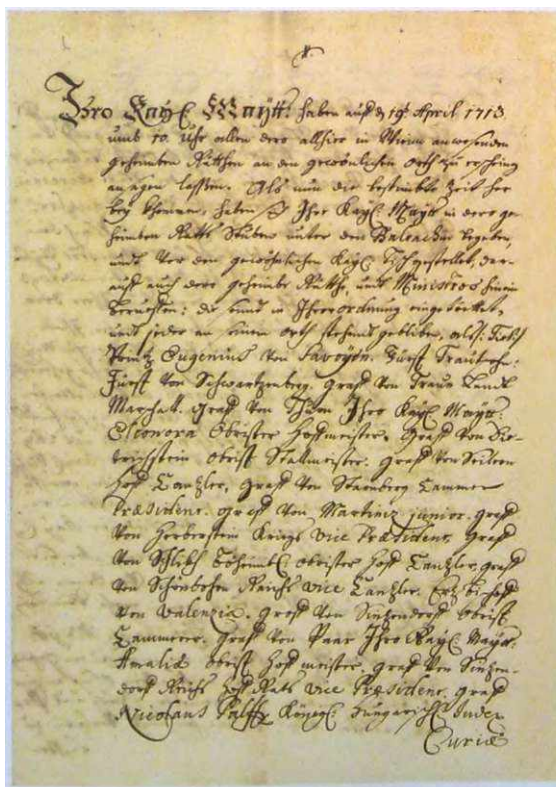 Ihro Kayl. Maytt: haben auf d 19t April 1713.
umb 10. Uhr allen dero allhier in Wienn anwesenden
geheimben Räthen an den gewönlichen orth zu erscheinen
ansagen lassen. Als nun die bestimbte Zeit her
bey khommen, haben sich Ihro Kayl. Maytt in dero ge-
heimbe Raths Stuben unter den Baldachin begeben,
und Vor den gewöhnlichen Kayl. Tisch gestellet, dar-
auff auch dero geheimbe Räthe, und Ministros hinein
beruffen: die sind in Ihrer ordnung eingetretten,
und jeder an seinem orth stehend gebliben, alß:
Printz Eugenius von Savoyen. Fürst Trautsohn:
Fürst von Schwartzenberg. graff von Traun Landt
Marschall. graff von Thurn Ihro Kayl. Maytt:
Eleonora Obrister Hoffmeister. graff von Die-
trichstein obrist Stallmeister. graff von Seilern
Hoff Cantzler, graff von Starnberg Cammer
Præsident. graff von Martiniz junior. graff
von Herberstein Kriegs vice Præsident. graff
von Schlikh Böheimbl. obrister Hoff Cantzler. graff
von Schönborn Reichs vice Cantzler. Ertzbischoff
von Valenzia. graff von Sintzendorff Obrist
Cammerer. graff von Paar Ihro Kayl. Maytt:
Amaliæ obrist Hoffmeister. graff von Sintzen-
dorff Reichs Hoff Raths vice Præsident. graff
Nicolaus Palffy Königl. hungarischer Judex
Curiæ